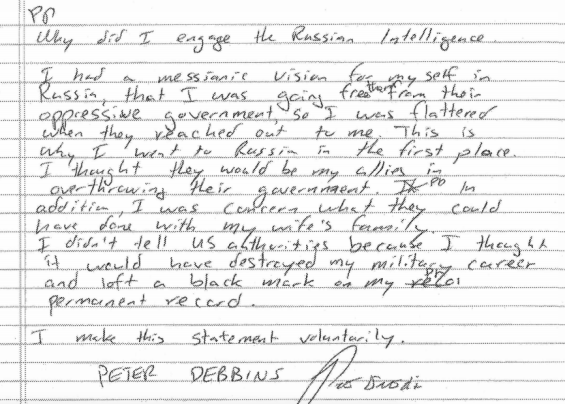 PD
Why did I engage the Russian Intelligence
I had a messianic vision for my self in
Russia, that I was going free them from their
oppressive government, so I was flattered
when they reached out to me. This is
why I went to Russia in the first place.
I thought they would be my allies in
overthrowing their government. PD In
addition, I was concern what they could
have done with my wife's family.
I didn't tell US authorities because I thought
it would have destroyed my military career
and left a black mark on my PD
permanent record.
I make this statement voluntarily.
PETER DEBBINS